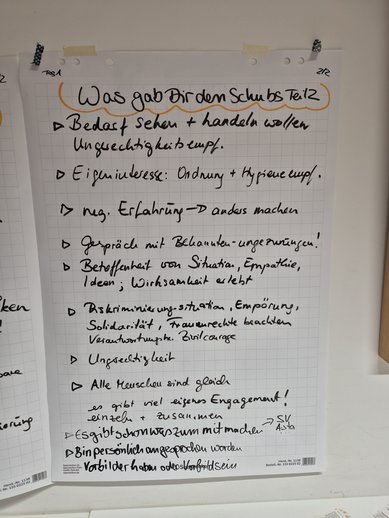 Tag 1
2/2
Was gab Dir den Schubs Teil 2
▷ Bedarf sehen + handeln wollen
Ungerechtigkeitsempf.
▷ Eigeninteresse: Ordnung + Hygieneempf.
▷ neg. Erfahrung → anders machen
▷ Gespräch mit Bekannten - ungezwungen!
▷ Betroffenheit von Situation, Empathie,
Ideen, Wirksamkeit erlebt
▷ Diskriminierung-situation, Empörung,
Solidarität, Frauenrechte beachten
Verantwortungsbe. Zivilcourage
▷ Ungerechtigkeit
▷ Alle Menschen sind gleich
es gibt viel eigenes Engagement!
einzeln + zusammen
▷ Es gibt schon was zum mitmachen → SV
Asta
▷ Bin persönlich angesprochen worden
▷ Vorbilder haben oder Vorbild sein